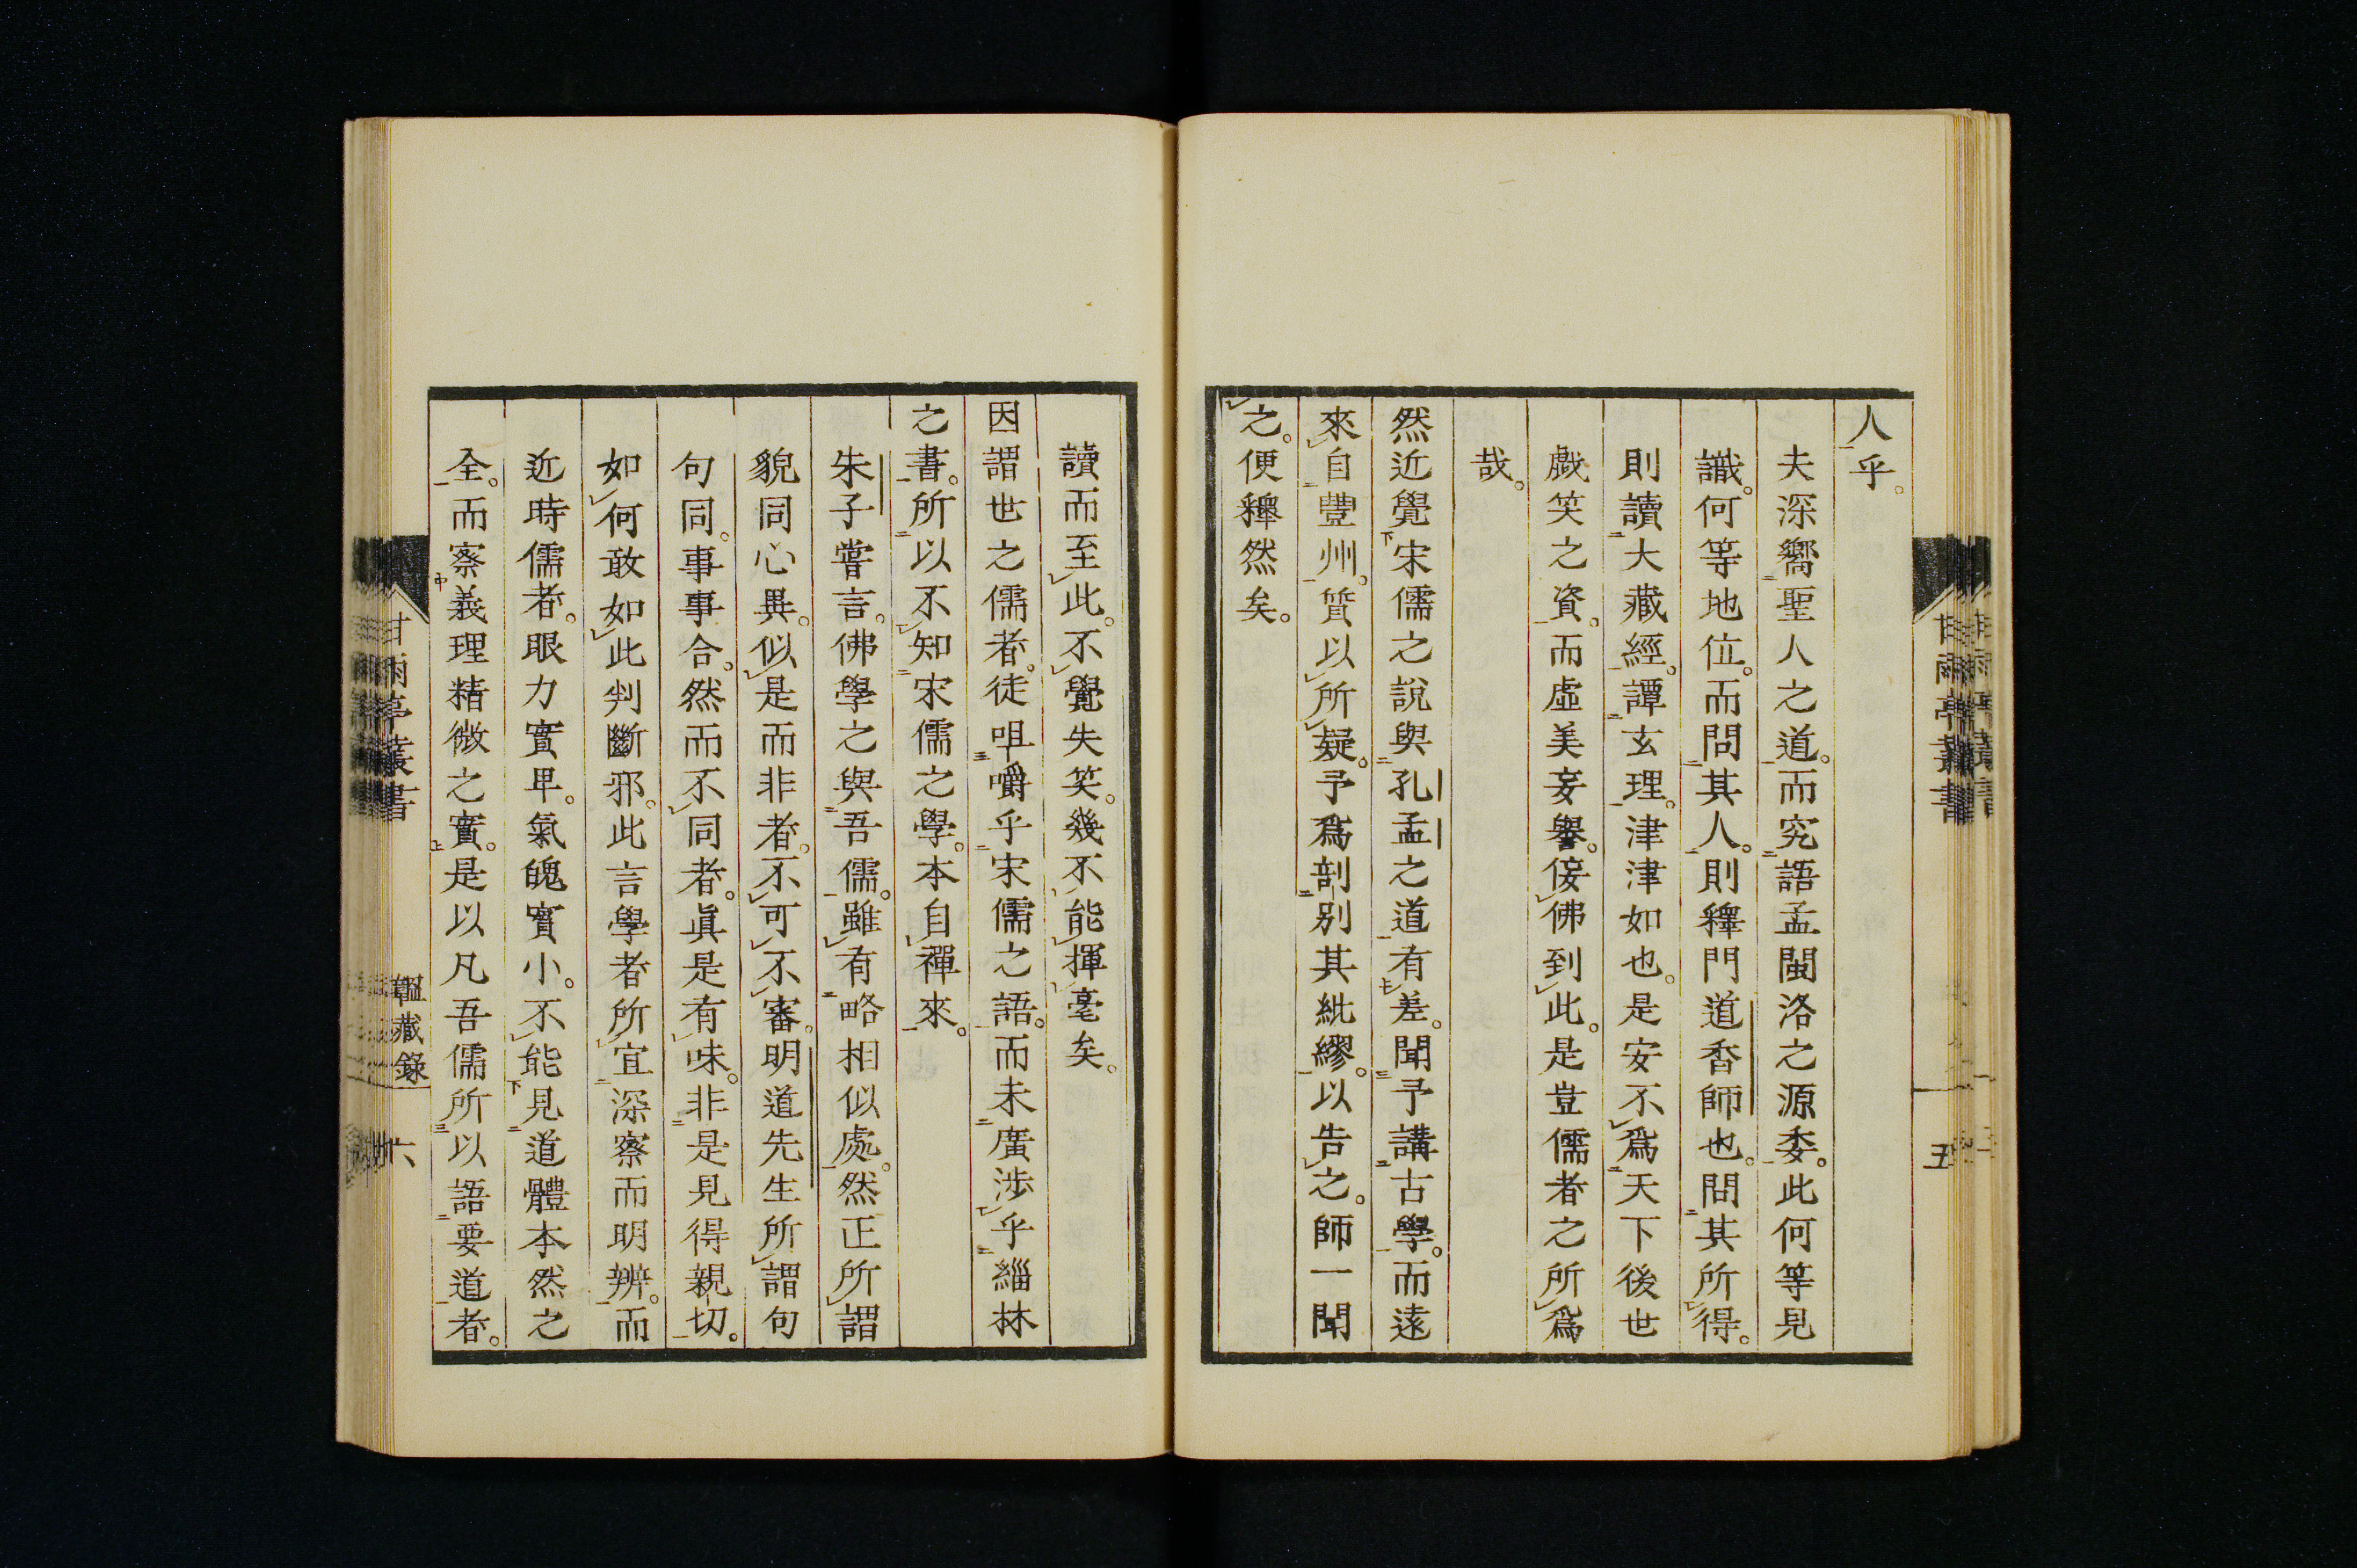 人乎。
夫深嚮聖人之道。而究語孟閩洛之源委。此何等見
識。何等地位。而問其人。則釋門道香師也。問其所得。
則讀大藏經。譚玄理。津津如也。是安不爲天下後世
戲笑之資。而虛美妄譽。侫佛到此。是豈儒者之所爲
哉。
然近覺宋儒之說與孔孟之道有差。聞予講古學。而遠
來自豐州。質以所疑。予爲剖別其紕繆。以告之。師一聞
之。便釋然矣。
讀而至此。不覺失笑。幾不能揮毫矣。
因謂世之儒者。徒咀嚼乎宋儒之語。而未廣涉乎緇林
之書。所以不知宋儒之學。本自禪來。
朱子嘗言。佛學之與吾儒。雖有略相似處。然正所謂
貌同心異。似是而非者。不可不審。明道先生所謂句
句同。事事合。然而不同者。眞是有味。非是見得親切。
如何敢如此判斷邪。此言學者所宜深察而明辨。而
近時儒者。眼力實卑。氣魄實小。不能見道體本然之
全。而察義理精微之實。是以凡吾儒所以語要道者。
甘雨亭叢書
五
甘雨亭叢書
韞藏錄
六